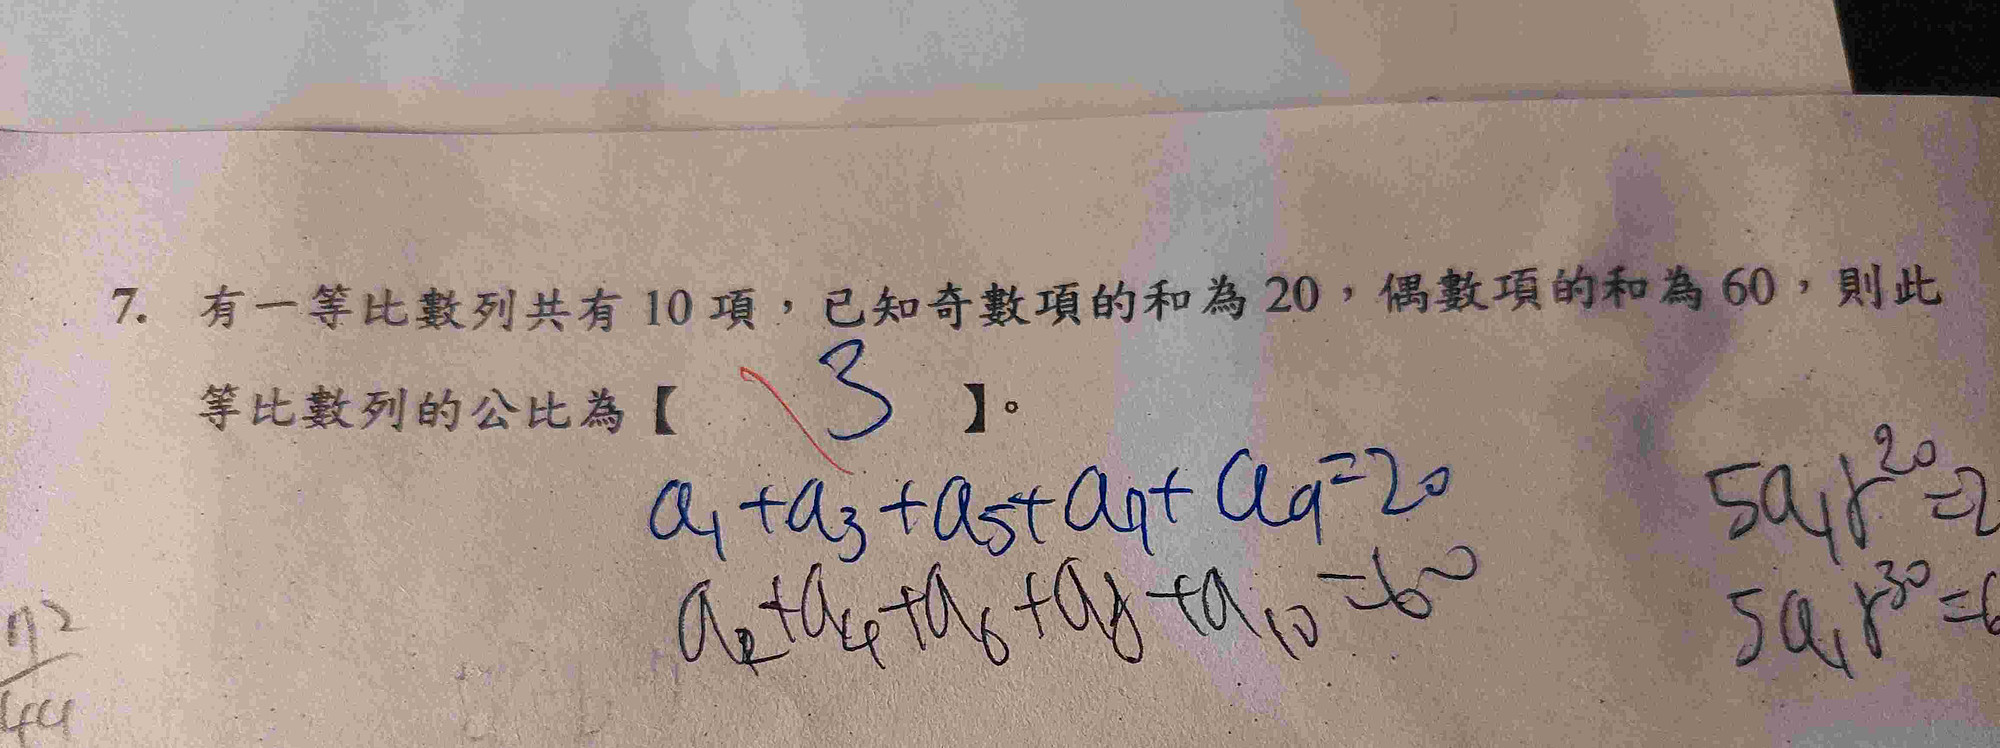 7. 有一等比數列共有 10 項，已知奇數項的和為 20，偶數項的和為 60，則此
等比數列的公比為【 3 】。
a₁+a₃+a₅+a₇+a₉=20
a₂+a₄+a₆+a₈+a₁₀=60
5a₁r²⁰=2
5a₁r³⁰=6